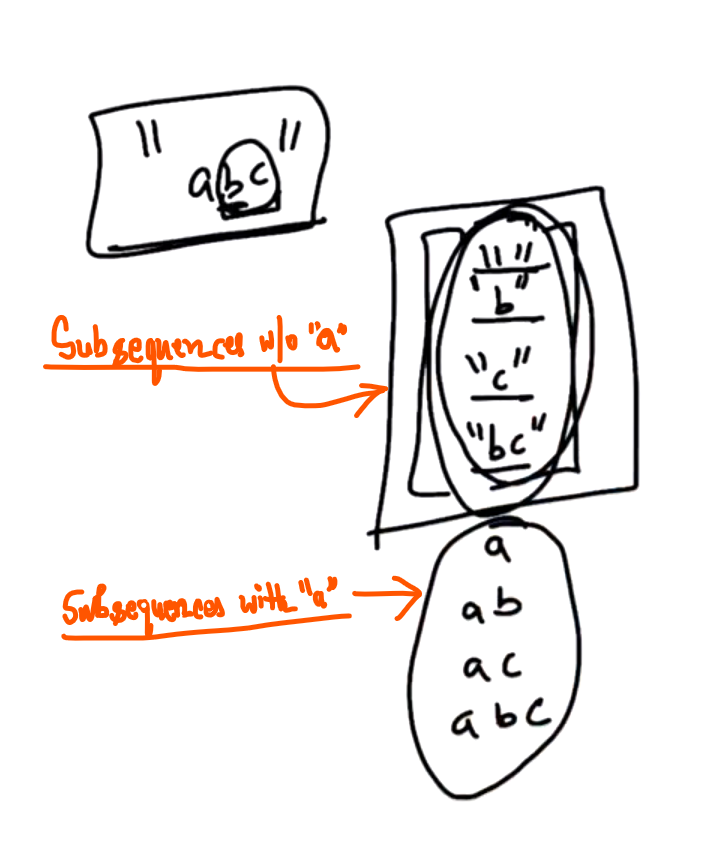 " abc "
Subsequences w/o "a"
" "
"b"
"c"
"bc"
a
Subsequences with "a"
ab
ac
abc